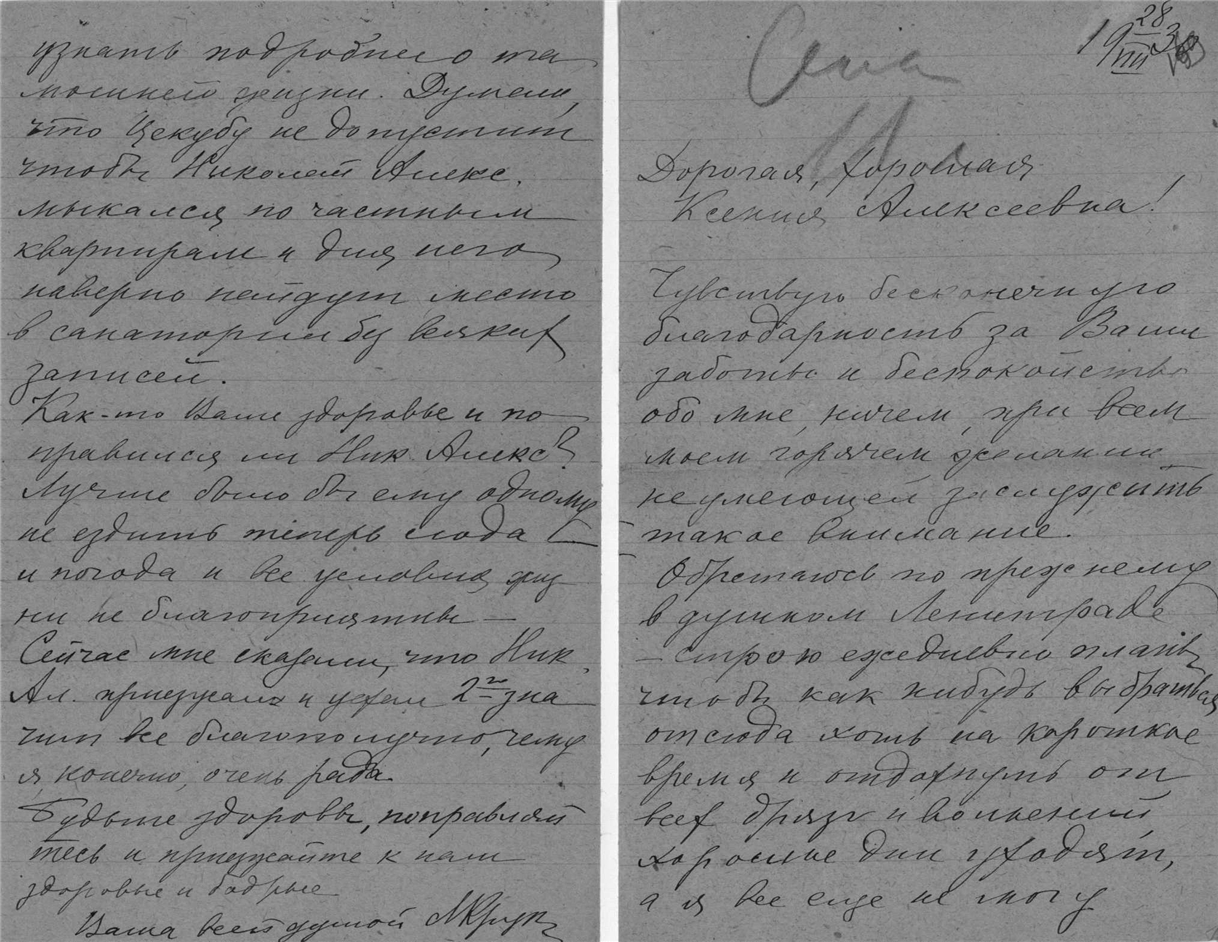 19 28/VIII 33
Дорогая, хорошая
Ксения Алексеевна!
Чувствую бесконечную
благодарность за Ваши
заботы и беспокойство
обо мне, ничем, при всем
моем горячем желании
не умеющей заслужить
такое внимание.
Обретаюсь по прежнему
в душном Ленинграде
– строю ежедневно планы
чтобы как нибудь выбраться
отсюда хоть на короткое
время и отдохнуть от
всех дрязг и волнений,
хорошие дни уходят,
а я все еще не могу
узнать подробнее о та
мошней жизни. Думали,
что Цекубу не допустит
чтобы Николай Алекс.
мыкался по частным
квартирам и для него
наверно найдут место
в санатории без всяких
записей.
Как-то Ваше здоровье и по
правился ли Ник Алекс?
Лучше было бы ему одному
не ездить теперь сюда –
и погода и все условия жиз
ни не благоприятны –
Сейчас мне сказали, что Ник.
Ал. приезжал и уехал 2го зна
чит все благополучно, чему
я, конечно, очень рада.
Будьте здоровы, поправляй
тесь и приезжайте к нам
здоровые и бодрые
Ваша всей душой